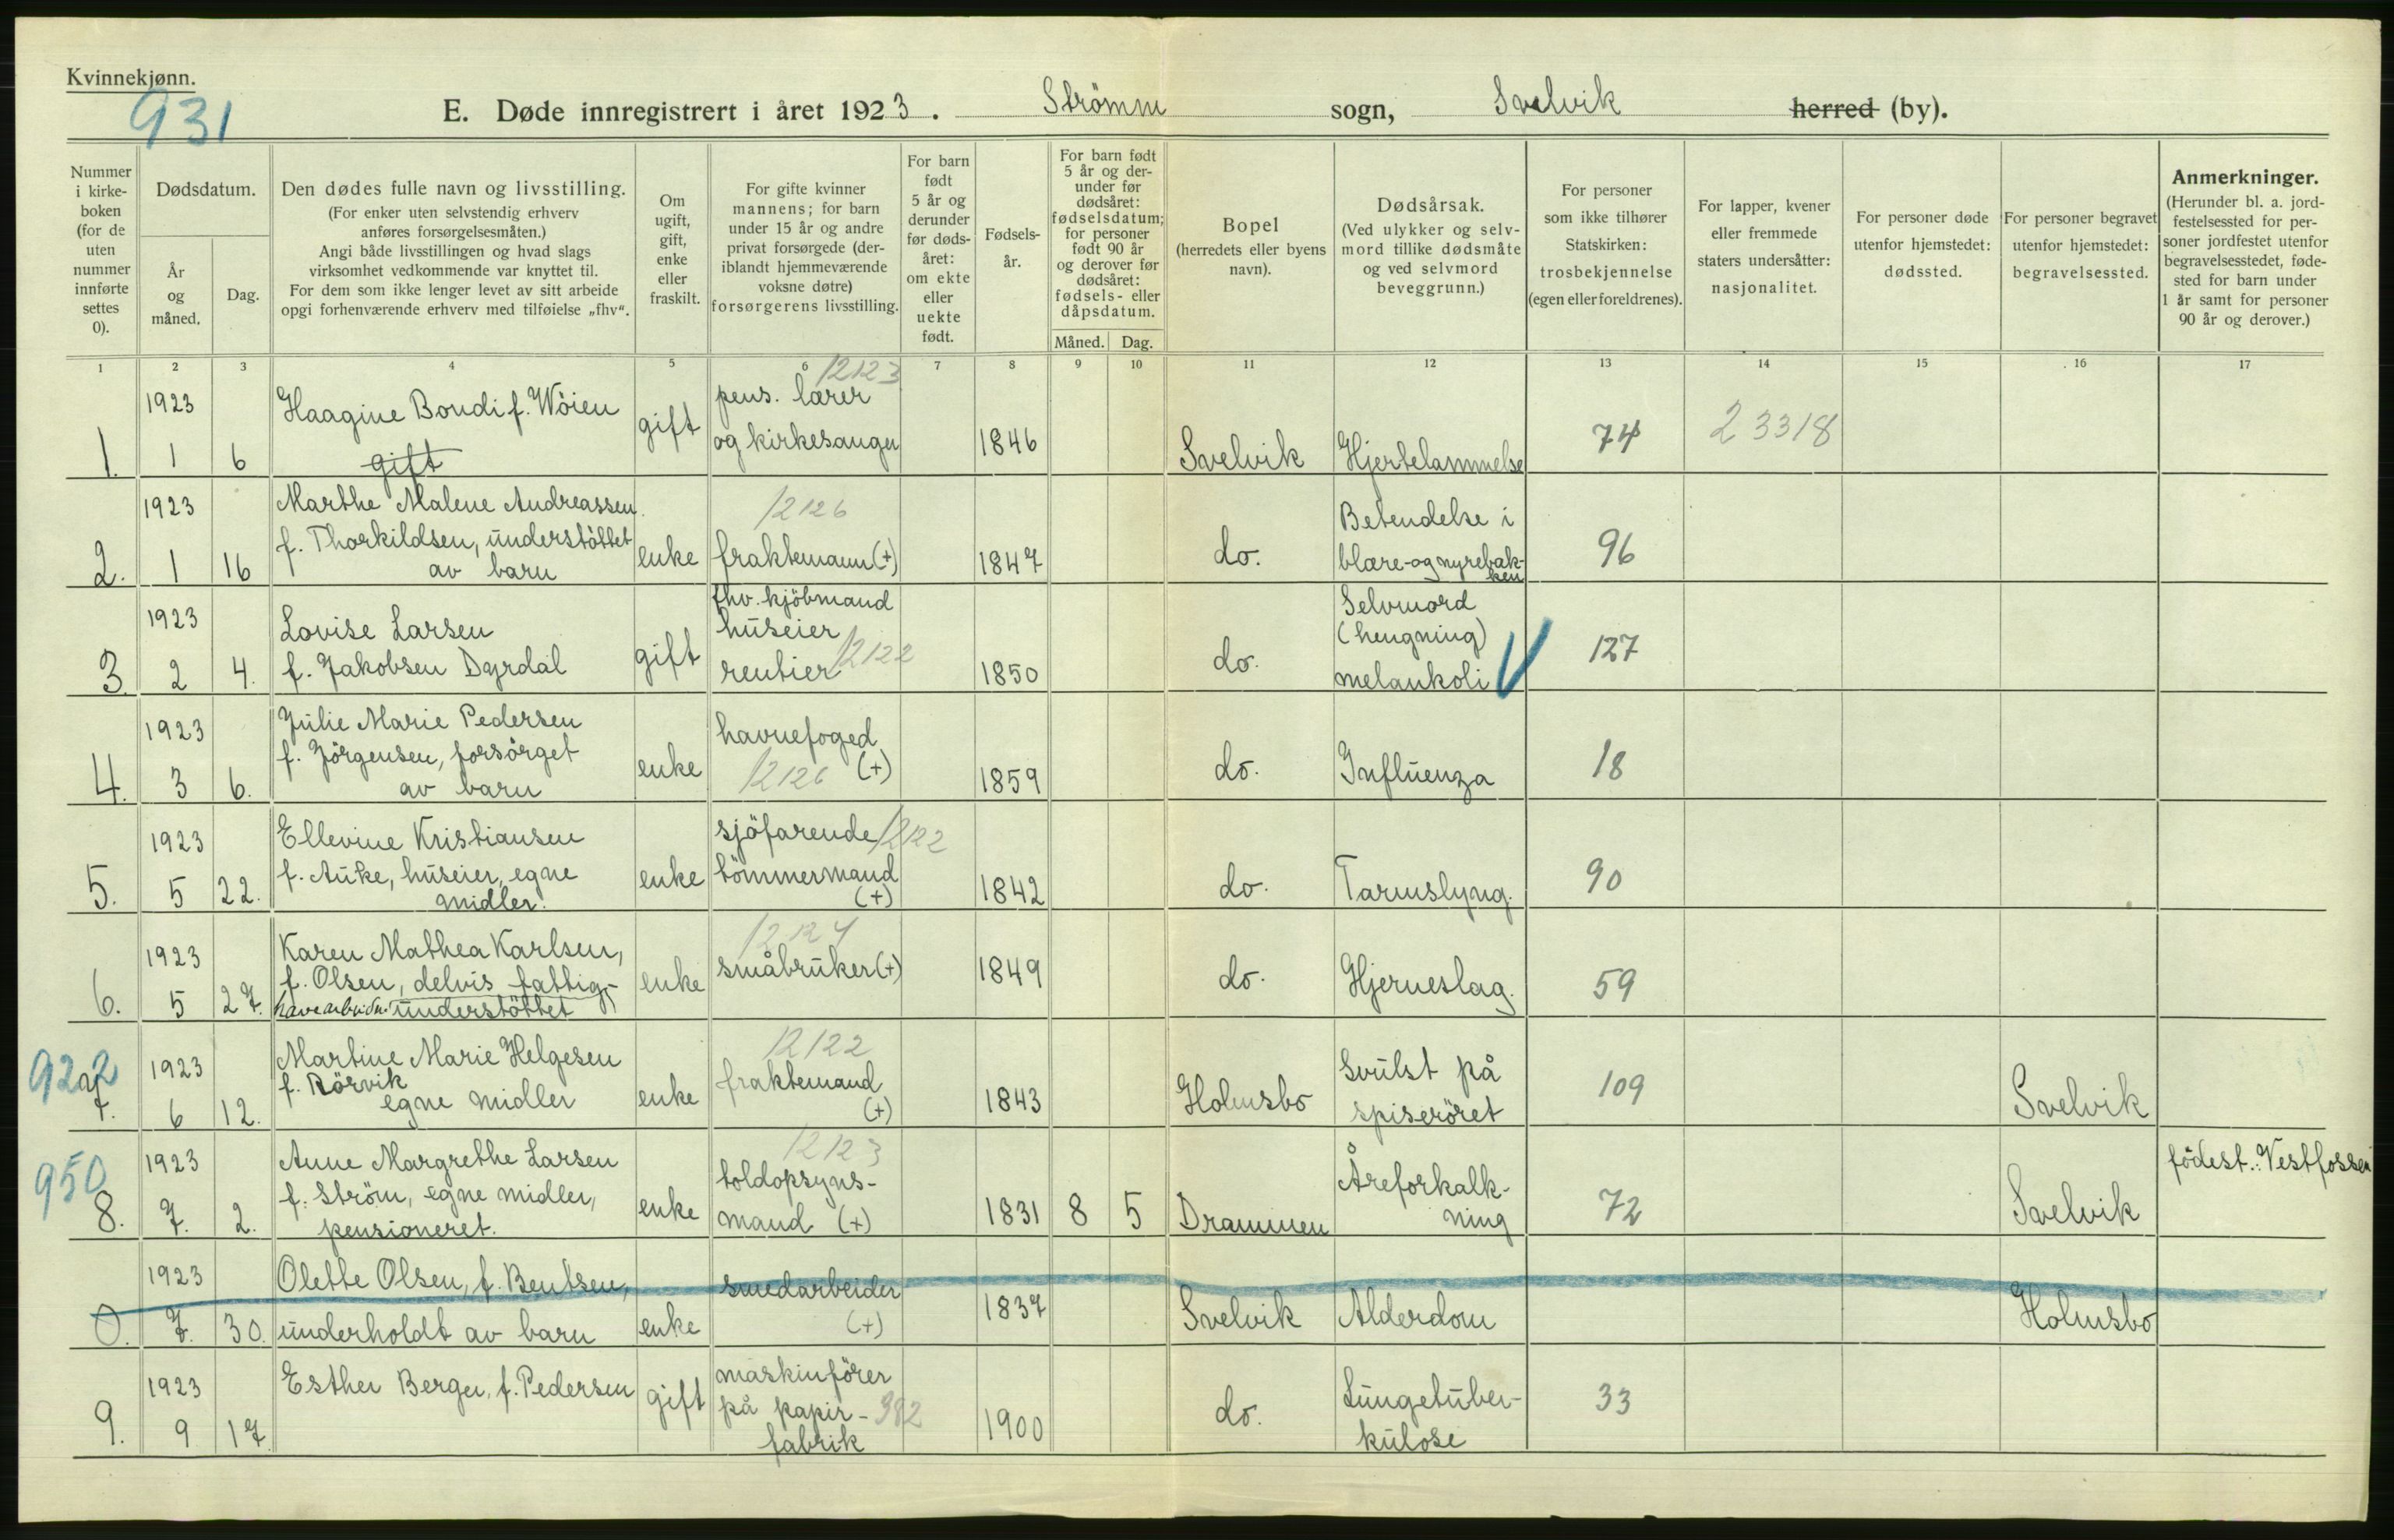 Kvinnekjønn.
931
E. Døde innregistrert i året 1923. Strömm sogn, Svelvik herred (by).
Nummer
i kirke-
boken
(for de
uten
nummer
innførte
settes
0).
Dødsdatum.
År
og
måned.
Dag.
Den dødes fulle navn og livsstilling.
(For enker uten selvstendig erhverv
anføres forsørgelsesmåten.)
Angi både livsstillingen og hvad slags
virksomhet vedkommende var knyttet til.
For dem som ikke lenger levet av sitt arbeide
opgi forhenværende erhverv med tilføielse „fhv“.
Om
ugift,
gift,
enke
eller
fraskilt.
For gifte kvinner
mannens; for barn
under 15 år og andre
privat forsørgede (der-
iblandt hjemmeværende
voksne døtre)
forsørgerens livsstilling.
For barn
født
5 år og
derunder
før døds-
året:
om ekte
eller
uekte
født.
Fødsels-
år.
For barn født
5 år og der-
under før
dødsåret:
fødselsdatum;
for personer
født 90 år
og derover før
dødsåret:
fødsels- eller
dåpsdatum.
Måned. Dag.
Bopel
(herredets eller byens
navn).
Dødsårsak.
(Ved ulykker og selv-
mord tillike dødsmåte
og ved selvmord
beveggrunn.)
For personer
som ikke tilhører
Statskirken:
trosbekjennelse
(egen eller foreldrenes).
For lapper, kvener
eller fremmede
staters undersåtter:
nasjonalitet.
For personer døde
utenfor hjemstedet:
dødssted.
For personer begravet
utenfor hjemstedet:
begravelsessted.
Anmerkninger.
(Herunder bl. a. jord-
festelsessted for per-
soner jordfestet utenfor
begravelsesstedet, føde-
sted for barn under
1 år samt for personer
90 år og derover.)
1 2 3 4 5 6 7 8 9 10 11 12 13 14 15 16 17
1. 1923
1 6
Haagine Bondi f. Wöien
gift
gift
12123
pens. lærer
og kirkesanger
1846
Svelvik
Hjertelammelse
74
23318
2. 1923
1 16
Marthe Malene Andreassen
f. Thorkildsen, understöttet
av barn
enke
12126
fraktemann (+)
1847
do.
Betendelse i
blære- og nyrebæk-
ken
96
3. 1923
2 4.
Lovise Larsen
f. Jakobsen Dyrdal
gift
fhv. kjöbmand
huseier
rentier 12122
1850
do.
Selvmord
(hengning)
melankoli
127
4. 1923
3 6.
Julie Marie Pedersen
f. Jörgensen, forsörget
av barn
enke
havnefoged
12126 (+)
1859
do.
Influenza
18
5. 1923
5 22.
Ellevine Kristiansen
f. Auke, huseier, egne
midler.
enke
sjöfarende 12122
tömmermand
(+)
1842
do.
Tarmslyng.
90
6. 1923
5 27.
Karen Mathea Karlsen,
f. Olsen, delvis fattig-
havearbeide understöttet
enke
12124
småbruker (+)
1849
do.
Hjerneslag.
59
922
7. 1923
6 12.
Martine Marie Helgesen
f. Rörvik
egne midler
enke
12122
fraktemand
(+)
1843
Holmsbo
Svulst på
spiseröret
109
Svelvik
950
8. 1923
7. 2.
Anne Margrethe Larsen
f. Ström, egne midler,
pensioneret.
enke
12123
toldopsyns-
mand (+)
1831 8 5
Drammen
Åreforkalk-
ning
72
Svelvik
födest.: Vestfossen
0. 1923
7. 30.
Olette Olsen, f. Bentsen,
underholdt av barn
enke
smedarbeider
(+)
1837
Svelvik
Alderdom
Holmsbo
9. 1923
9 17.
Esther Berger, f. Pedersen
gift
maskinförer
på papir- 382
fabrik
1900
do.
Lungetuber-
kulose
33